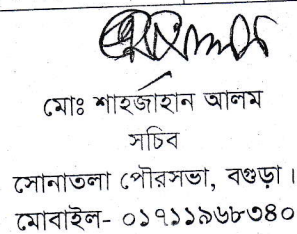 মোঃ শাহজাহান আলম
সচিব
সোনাতলা পৌরসভা, বগুড়া।
মোবাইল- ০১৭১১৯৬৮৩৪০